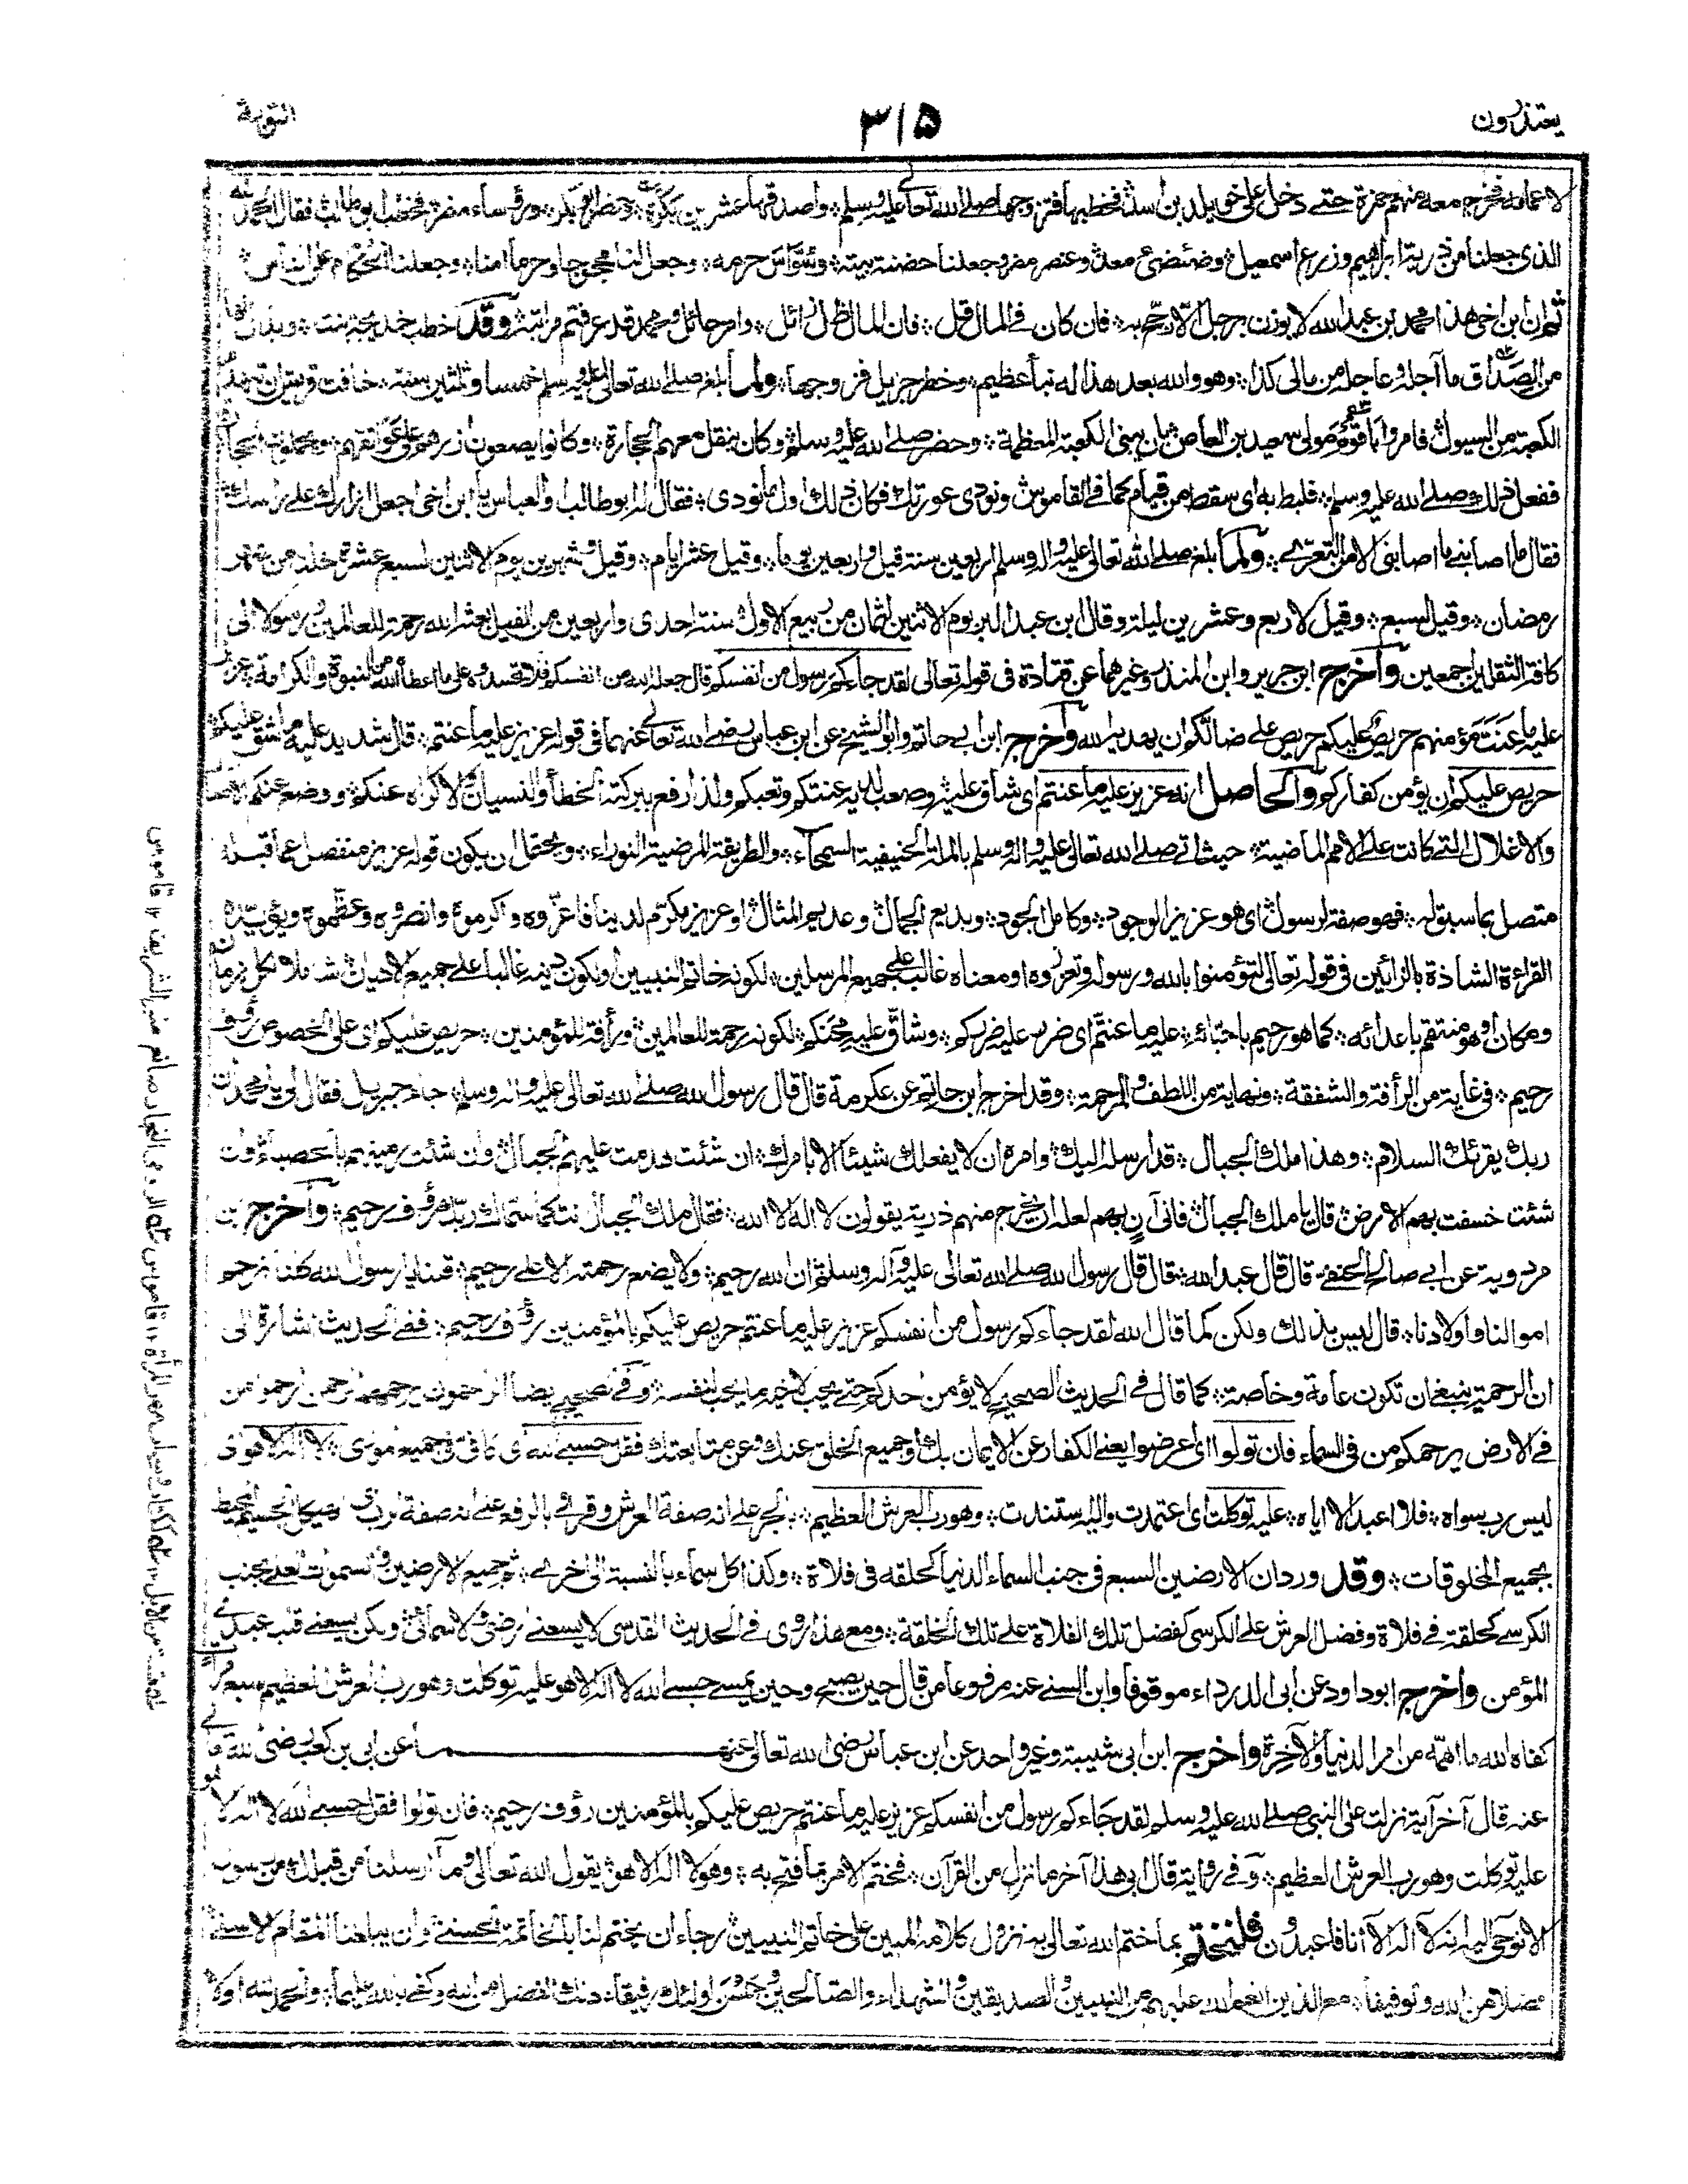 يعتذرون
٣١٥
التوبة
لاعمامه فخرج معه منهم حمزة حتى دخل على خويلد بن اسد فخطبها فتزوجها صلى الله تعالى عليه وسلم واصدقها عشرين بكرة وحضر ابو بكر ورؤساء مضر فخطب ابو طالب فقال الحمد لله
الذى جعلنا من ذرية ابراهيم وزرع اسمعيل وضئضئ معد وعنصر مضر وجعلنا حضنة بيته وسواس حرمه وجعل لنا محجوجا وحرما امنا وجعلنا الحكام على الناس
ثم ان ابن اخى هذا محمد بن عبد الله لا يوزن برجل الا رجح به فان كان فى المال قل فان المال ظل زائل وامر حائل ومحمد قد عرفتم قرابته وقد خطب خديجة بنت وبذل لها
من الصداق ما آجله وعاجله من مالى كذا وهو والله بعد هذا له نبأ عظيم وخطر جزيل فزوجها ولما بلغ صلى الله تعالى عليه وسلم خمسا وثلثين سنة خافت قريش ان تنهدم
الكعبة من السيول فامروا باقوم مولى سعيد بن العاص بان يبنى الكعبة المعظمة وحضر صلى الله عليه وسلم وكان ينقل معهم الحجارة وكانوا يضعون ازرهم على عواتقهم ويحملون الحجارة
ففعل ذلك صلى الله عليه وسلم فلبط به اى سقط من قيام كما فى القاموس ونودى عورتك فكان ذلك اول ما نودى فقال له ابو طالب او العباس يا ابن اخى اجعل ازارك على راسك
فقال ما اصابنى ما اصابنى الا من التعرى ولما بلغ صلى الله تعالى عليه واله وسلم اربعين سنة قيل واربعين يوما وقيل عشرة ايام وقيل وشهرين يوم الاثنين لسبع عشرة خلت من شهر
رمضان وقيل لسبع وقيل لاربع وعشرين ليلة وقال ابن عبد البر يوم الاثنين لثمان من ربيع الاول سنة احدى واربعين من الفيل بعثه الله رحمة للعالمين ورسولا الى
كافة الثقلين اجمعين واخرج ابن جرير وابن المنذر وغيرهما عن قتادة فى قوله تعالى لقد جاءكم رسول من انفسكم قال جعله الله من انفسكم فلا تحسدوه على ما اعطاه الله من النبوة والكرامة عزيز
عليه ما عنت مؤمنهم حريص عليكم حريص على ضالكم ان يهديه الله واخرج ابن ابى حاتم وابو الشيخ عن ابن عباس رضى الله تعالى عنهما فى قوله عزيز عليه ما عنتم قال شديد عليه ما شق عليكم
حريص عليكم ان يؤمن كفاركم والحاصل انه عزيز عليه ما عنتم اى شاق عليه وصعب لديه عنتكم وتعبكم ولذا رفع ببركته الخطأ والنسيان والاكراه عنكم ووضع عنكم الاصار
والاغلال التى كانت على الامم الماضية حيث اتى صلى الله تعالى عليه واله وسلم بالملة الحنيفية السمحاء والطريقة المرضية النوراء ويحتمل ان يكون قوله عزيز منفصل عما قبله
متصل بما سبق له فهو صفة لرسول اى هو عزيز الوجود وكامل الجود وبديع الجمال وعديم المثال او عزيز مكرم لدينا فاعزوه واكرموه وانصروه وعظموه ويؤيده
القراءة الشاذة بالزائين فى قوله تعالى لتؤمنوا بالله ورسوله وتعززوه او معناه غالب على جميع المرسلين لكونه خاتم النبيين او لكون دينه غالبا على جميع الاديان شاملا لكل زمان
ومكان او هو منتقم باعدائه كما هو رحيم باحبائه عليه ما عنتم اى ضرر عليه ضركم وشاق عليه محنكم لكونه رحمة للعالمين ورأفة للمؤمنين حريص عليكم اى على الخصوص رؤف
رحيم فى غاية من الرأفة والشفقة ونهاية من اللطف والرحمة وقد اخرج ابن حاتم عن عكرمة قال قال رسول الله صلى الله تعالى عليه واله وسلم جاء جبريل فقال لى يا محمد ان
ربك يقرئك السلام وهذا ملك الجبال قد ارسله اليك وامره ان لا يفعل شيئا الا بامرك ان شئت هدمت عليهم الجبال وان شئت رميتهم بالحصباء وان
شئت خسفت بهم الارض قال يا ملك الجبال فانى آن بهم لعله ان يخرج منهم ذرية يقولون لا اله الا الله فقال ملك الجبال انت كما سماك ربك رؤف رحيم واخرج ابن
مردوية عن ابى صالح الحنفى قال قال عبد الله قال قال رسول الله صلى الله تعالى عليه واله وسلم ان الله رحيم ولا يضع رحمته الا على رحيم قلنا يا رسول الله كلنا نرحم
اموالنا واولادنا قال ليس بذلك ولكن كما قال الله لقد جاءكم رسول من انفسكم عزيز عليه ما عنتم حريص عليكم بالمؤمنين رؤف رحيم ففى الحديث اشارة الى
ان الرحمة ينبغى ان تكون عامة وخاصة كما قال فى الحديث الصحيح لا يؤمن احدكم حتى يحب لاخيه ما يحب لنفسه وفى الصحيح ايضا الراحمون يرحمهم الرحمن ارحموا من
فى الارض يرحمكم من فى السماء فان تولوا اى اعرضوا يعنى الكفار عن الايمان بك او جميع الخلق عنك وعن متابعتك فقل حسبى الله اى كافى فى جميع امورى لا اله الا هو اى
ليس رب سواه فلا اعبد الا اياه عليه توكلت اى اعتمدت واليه استندت وهو رب العرش العظيم بالجر على انه صفة العرش وقرئ بالرفع على انه صفة الرب الجسيم المحيط
بجميع المخلوقات وقد ورد ان الارضين السبع فى جنب السماء الدنيا كحلقة فى فلاة وكذا كل سماء بالنسبة الى اخرى ثم جميع الارضين والسموات العلى بجنب
الكرسى كحلقة فى فلاة وفضل العرش على الكرسى كفضل تلك الفلاة على تلك الحلقة ومع هذا روى فى الحديث القدسى لا يسعنى ارضى ولا سمائى ولكن يسعنى قلب عبدى
المؤمن واخرج ابو داود عن ابى الدرداء موقوفا وابن السنى عنه مرفوعا من قال حين يصبح وحين يمسى حسبى الله لا اله الا هو عليه توكلت وهو رب العرش العظيم سبع مرات
كفاه الله ما اهمه من امر الدنيا والآخرة واخرج ابن ابى شيبة وغير واحد عن ابن عباس رضى الله تعالى عنهما عن ابى بن كعب رضى الله تعالى
عنه قال آخر آية نزلت على النبى صلى الله عليه وسلم لقد جاءكم رسول من انفسكم عزيز عليه ما عنتم حريص عليكم بالمؤمنين رؤف رحيم فان تولوا فقل حسبى الله لا اله الا هو
عليه توكلت وهو رب العرش العظيم وفى رواية قال ابى هذا آخر ما نزل من القرآن فختم الامر بما فتح به وهو لا اله الا هو يقول الله تعالى وما ارسلنا من قبلك من رسول
الا نوحى اليه انه لا اله الا انا فاعبدون فلنختم بما ختم الله تعالى به نزول كلامه المبين على خاتم النبيين رجاء ان يختم لنا بالخاتمة الحسنى وان يبلغنا المقام الاسنى
فضلا من الله وتوفيقا مع الذين انعم الله عليهم من النبيين والصديقين والشهداء والصالحين وحسن اولئك رفيقا ذلك الفضل من الله وكفى بالله عليما والحمد لله اولا